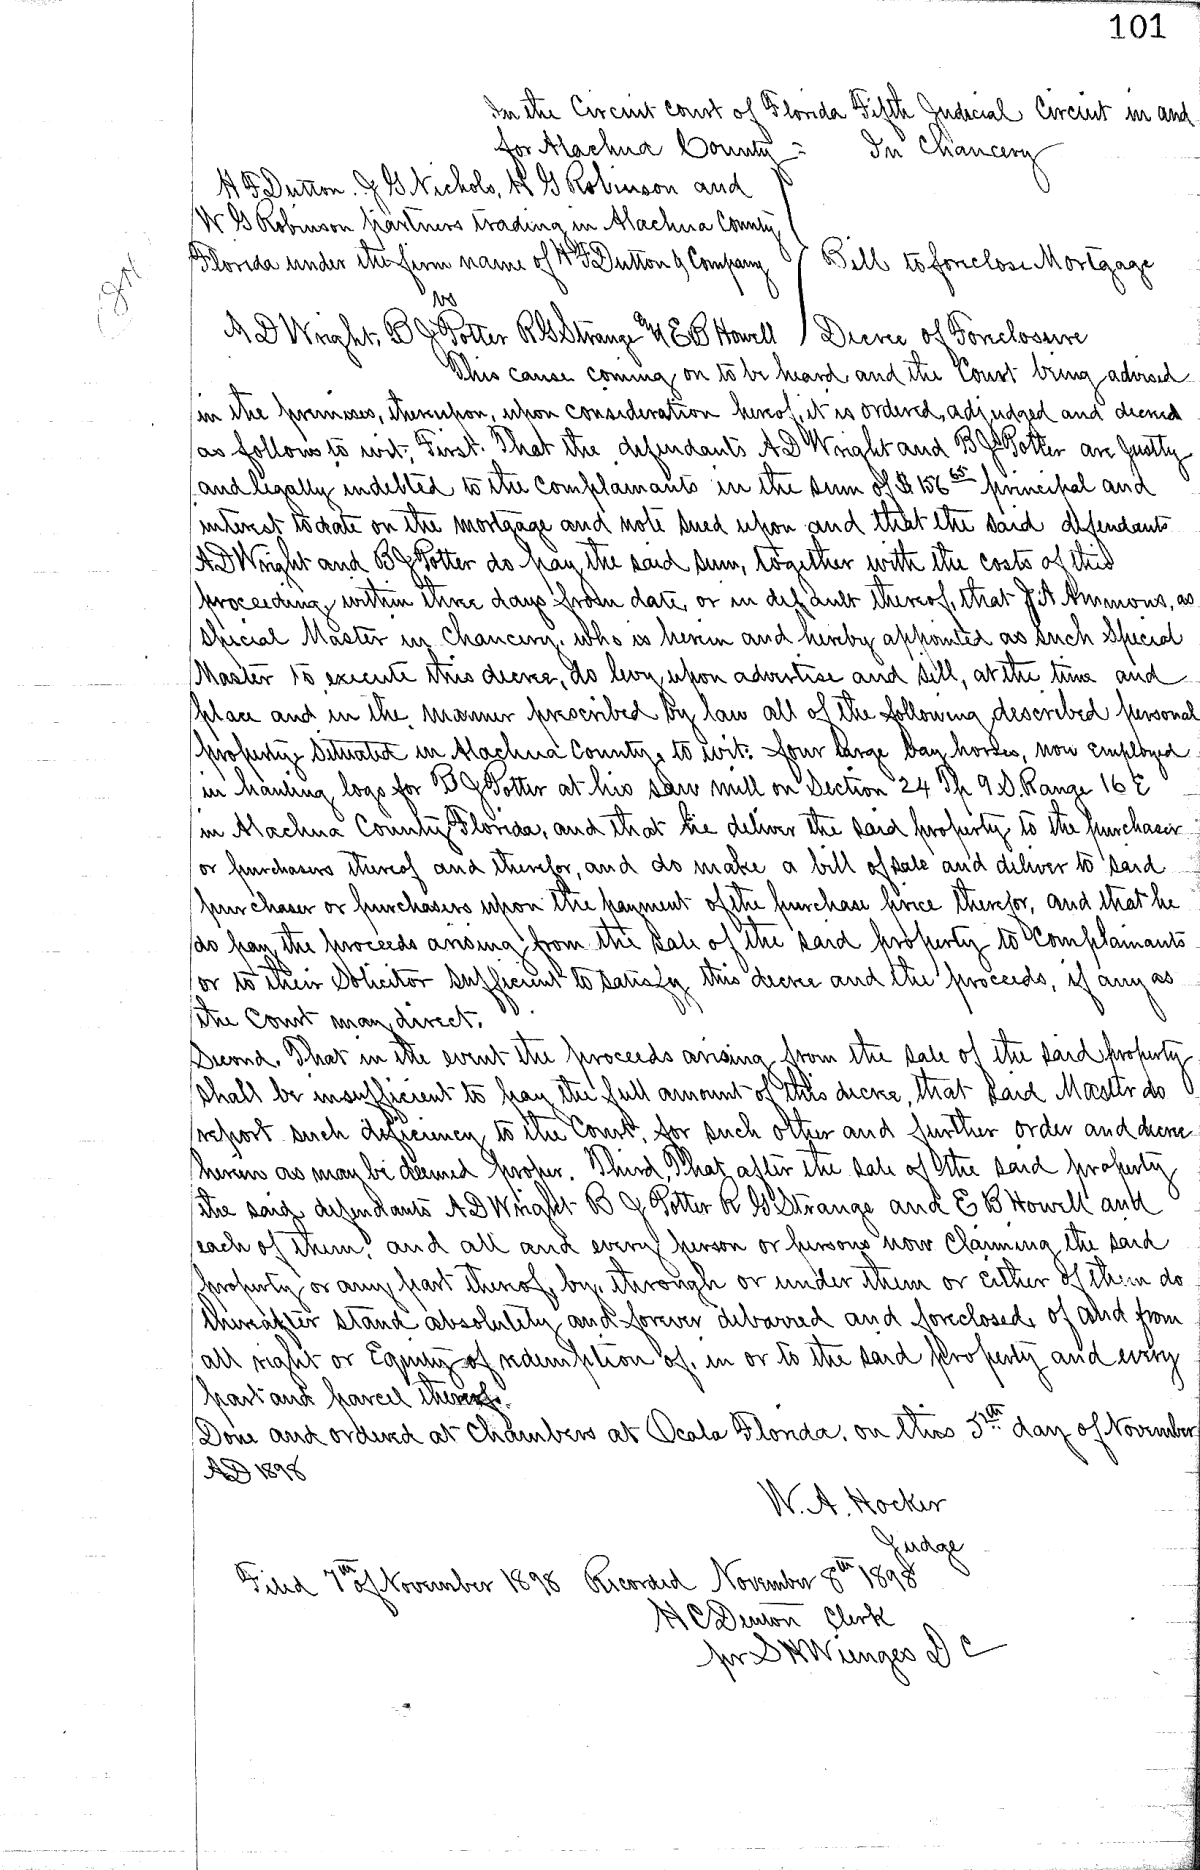 101
In the Circuit court of Florida Fifth Judicial Circuit in and
for Alachua County = In Chancery
H F Dutton. J G Nichols, H G Robinson and
W G Robinson partners trading in Alachua County
Florida under the firm name of H F Dutton & Company Bill to foreclose Mortgage
vs
A D Wright, B J Potter R G Strange and E B Howell Decree of Foreclosure
This cause coming on to be heard and the Court being advised
in the premises, thereupon, upon consideration hereof, it is ordered, adjudged and decreed
as follows to wit; First. That the defendants A D Wright and B J Potter are Justly
and legally indebted to the Complainants in the sum of $156 65 principal and
interest to date on the mortgage and note sued upon and that the said defendants
A D Wright and B J Potter do pay the said sum, together with the costs of this
proceeding, within three days from date, or in default thereof, that J A Ammons, as
Special Master in Chancery, who is herein and hereby appointed as such Special
Master to execute this decree, do levy upon advertise and sell, at the time and
place and in the manner prescribed by law all of the following described personal
property, situated in Alachua County, to wit: four large bay horses, now employed
in hauling logs for B J Potter at his saw mill on Section 24 Tp 9 S Range 16 E
in Alachua County Florida, and that he deliver the said property to the purchaser
or purchasers thereof and therefor, and do make a bill of sale and deliver to said
purchaser or purchasers upon the payment of the purchase price therefor, and that he
do pay the proceeds arising from the sale of the said property to Complainants
or to their Solicitor sufficient to satisfy this decree and the proceeds, if any as
the Court may direct.
Second. That in the event the proceeds arising from the sale of the said property
shall be insufficient to pay the full amount of this decree, that said Master do
report such deficiency to the Court, for such other and further order and decree
herein as may be deemed proper. Third, That after the sale of the said property
the said defendants A D Wright B J Potter R G Strange and E B Howell and
each of them, and all and every person or persons now claiming the said
property or any part thereof, by, through or under them or either of them do
thereafter stand absolutely and forever debarred and foreclosed of and from
all right or Equity of redemption of, in or to the said property and every
part and parcel thereof.
Done and ordered at Chambers at Ocala Florida, on this 5th day of November
AD 1898
W. A. Hocker
Judge
Filed 7th of November 1898 Recorded November 8th 1898
H C Denton Clerk
pr S H Wienges D C